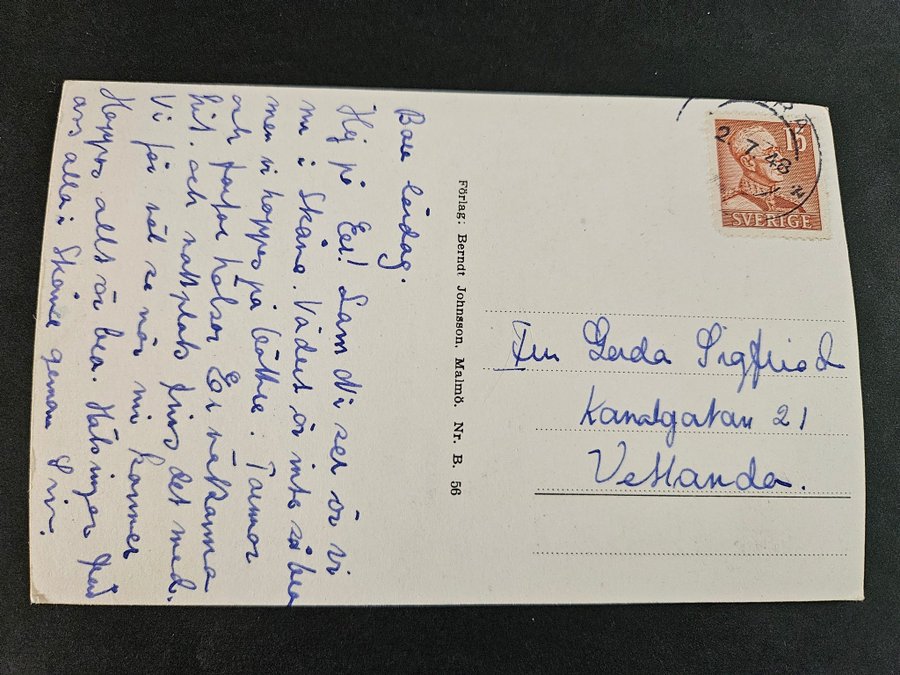 lördag.
Hej på Eer! Som Ni ser är vi
nu i Skåne. Vädret är inte så bra
men vi hoppas på bättre.
och farfar hälsar Er välkomna
hit och nattplats finns det med.
Vi får väl se när ni kommer
Hoppas allt är bra. Hälsningar från
oss alla i Skåne genom
Förlag: Berndt Johnsson, Malmö. Nr. B. 56
2.7.48
15
SVERIGE
Fru Gerda Sigfrid
Kanalgatan 21
Vetlanda.